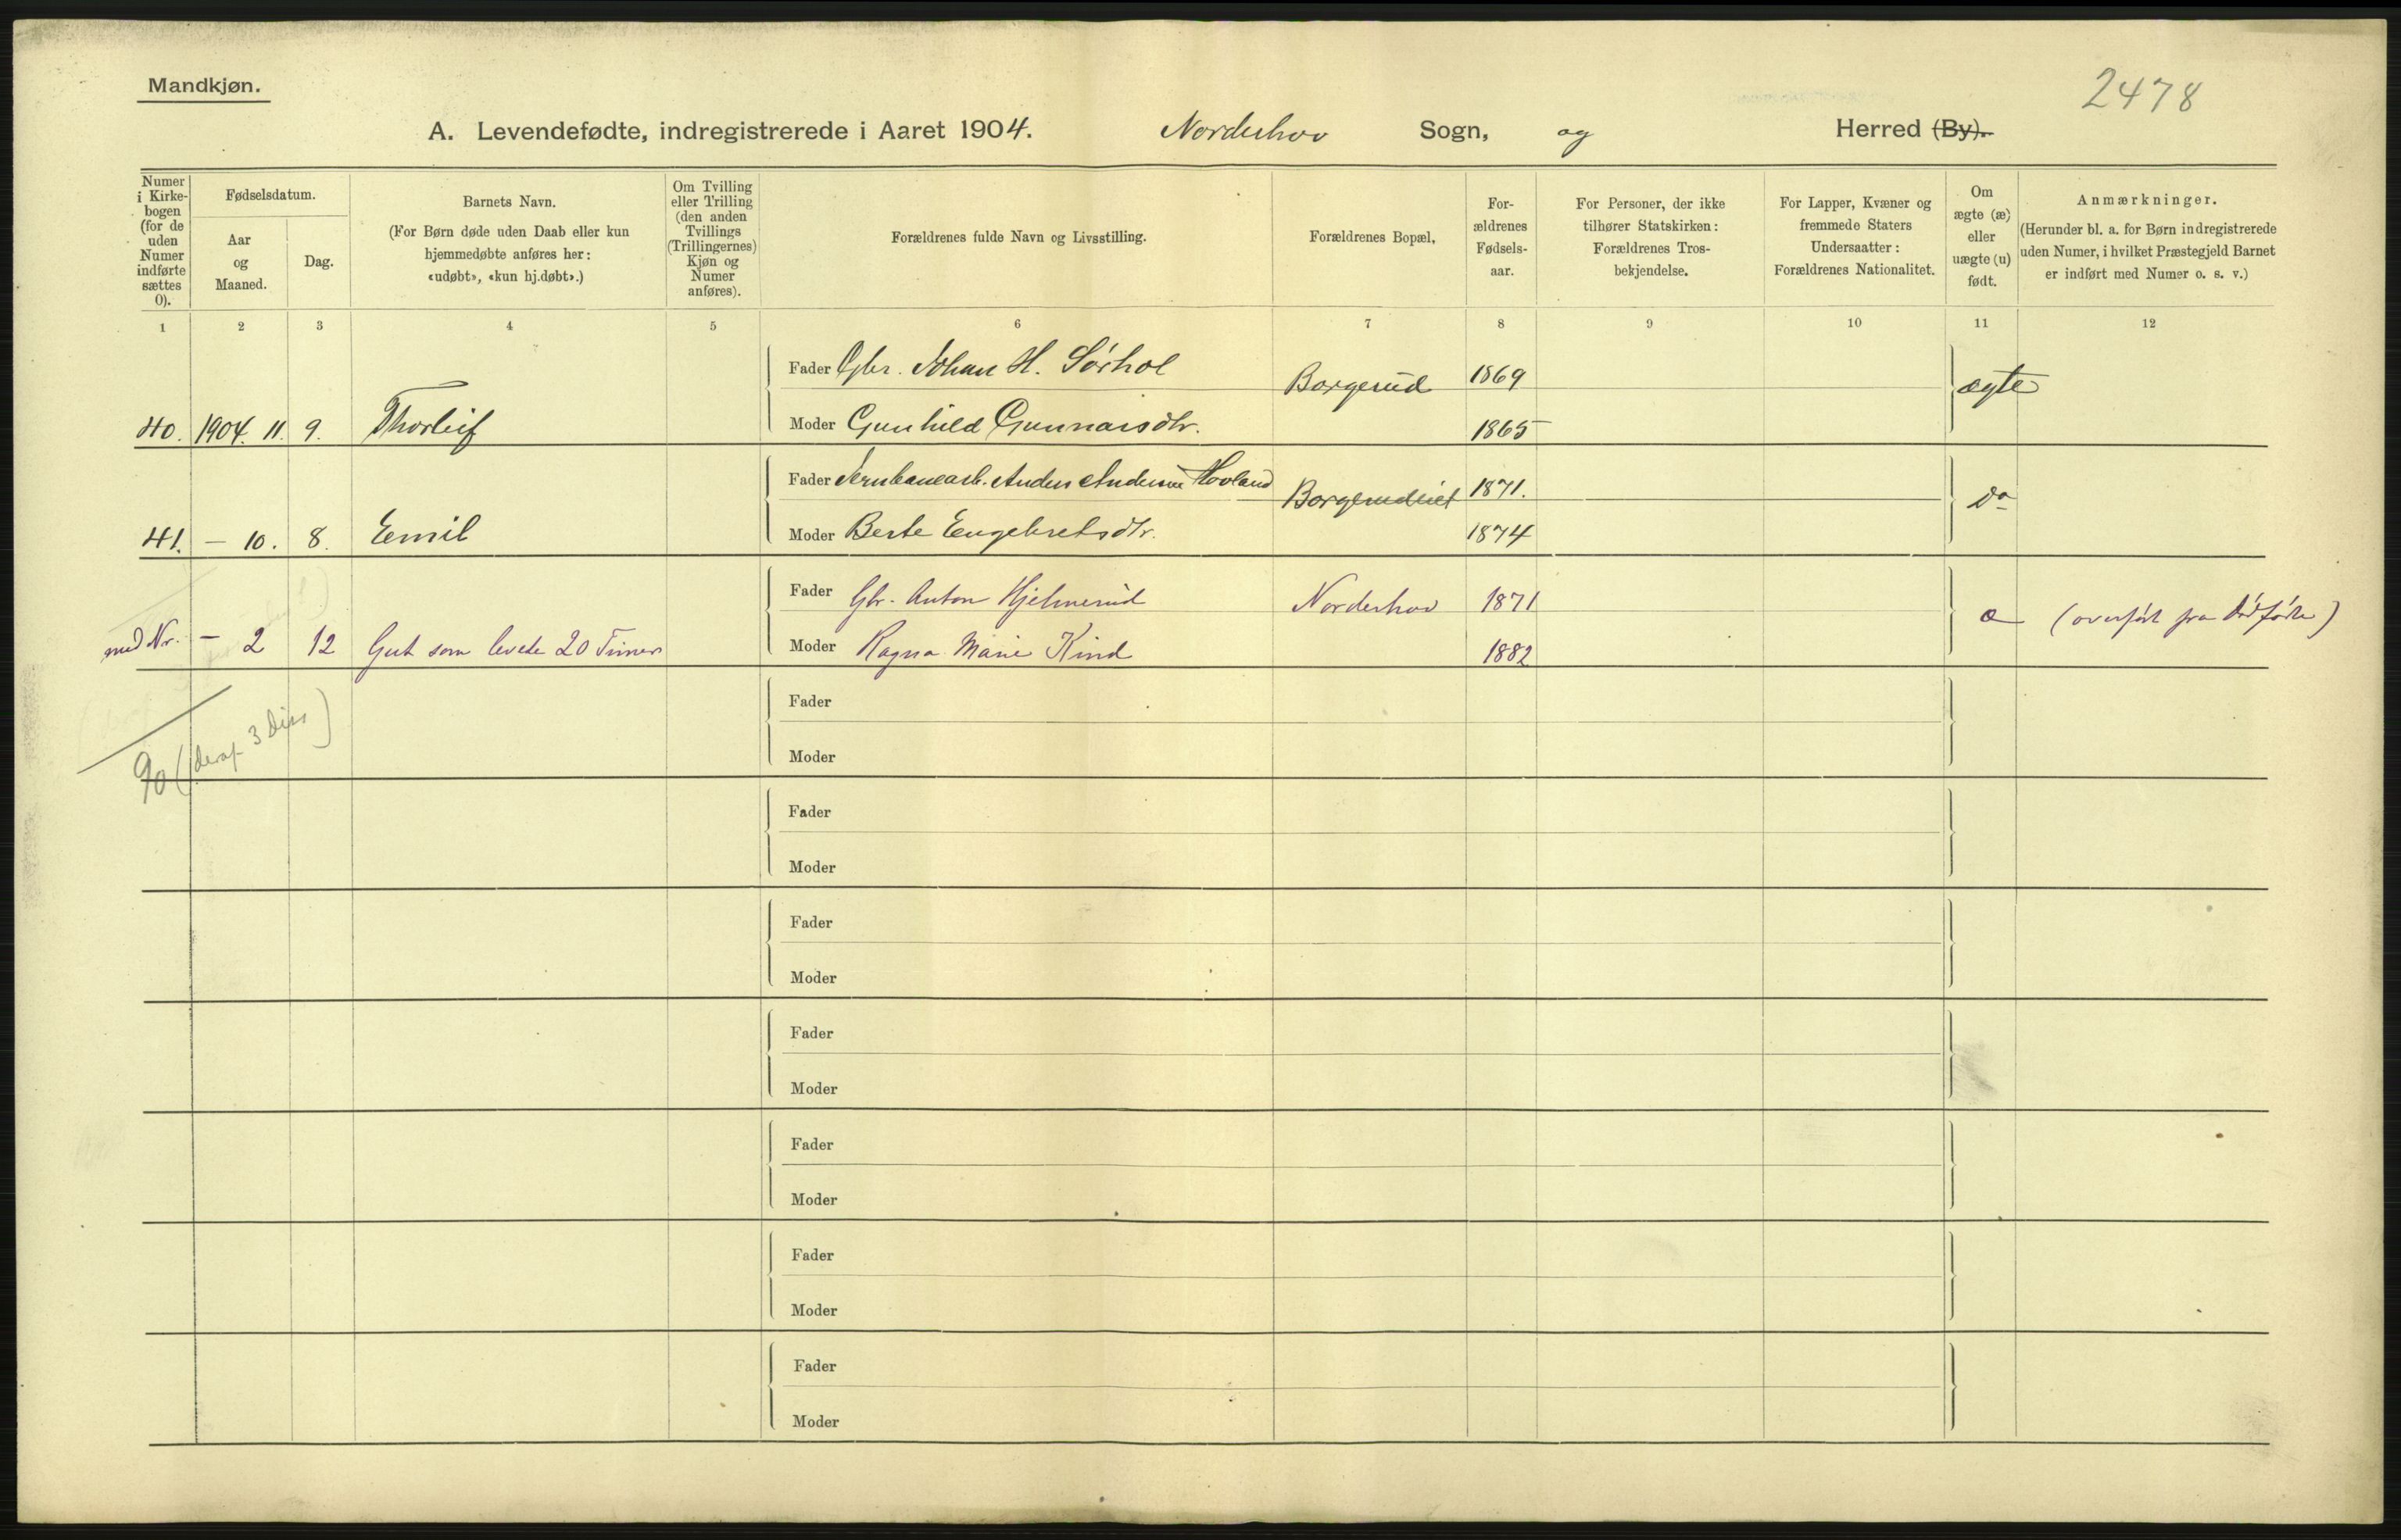 Mandkjøn.
2478
A. Levendefødte, indregistrerede i Aaret 1904. Norderhov Sogn, og Herred (By).
Numer i Kirkebogen (for de uden Numer indførte sættes 0).
Fødselsdatum.
Aar og Maaned.
Dag.
Barnets Navn.
(For Børn døde uden Daab eller kun
hjemmedøbte anføres her:
«udøbt», «kun hj.døbt».)
Om Tvilling eller Trilling (den anden Tvillings (Trillingernes) Kjøn og Numer anføres).
Forældrenes fulde Navn og Livsstilling.
Forældrenes Bopæl,
For-
ældrenes
Fødsels-
aar.
For Personer, der ikke
tilhører Statskirken:
Forældrenes Tros-
bekjendelse.
For Lapper, Kvæner og
fremmede Staters
Undersaatter:
Forældrenes Nationalitet.
Om
ægte (æ)
eller
uægte (u)
født.
Anmærkninger.
(Herunder bl. a. for Børn indregistrerede
uden Numer, i hvilket Præstegjeld Barnet
er indført med Numer o. s. v.)
1 2 3 4 5 6 7 8 9 10 11 12
Fader Gbr. Johan H. Sørhol Borgerud 1869 ægte
40. 1904. 11. 9. Thorleif Moder Gunhild Gunnarsdtr. 1865
Fader Jernbanearb. Anders Andersen Hovland Borgerudeiet 1871. Do
41. — 10. 8. Emil Moder Berte Engebretsdtr. 1874
Fader Gbr. Anton Hjelmerud Norderhov 1871 æ (overført fra dødfødte)
med Nr. — 2 12 Gut som levede 20 Timer Moder Ragna Marie Kind 1882
Fader
90 (deraf 3 Dips)
Moder
Fader
Moder
Fader
Moder
Fader
Moder
Fader
Moder
Fader
Moder
Fader
Moder